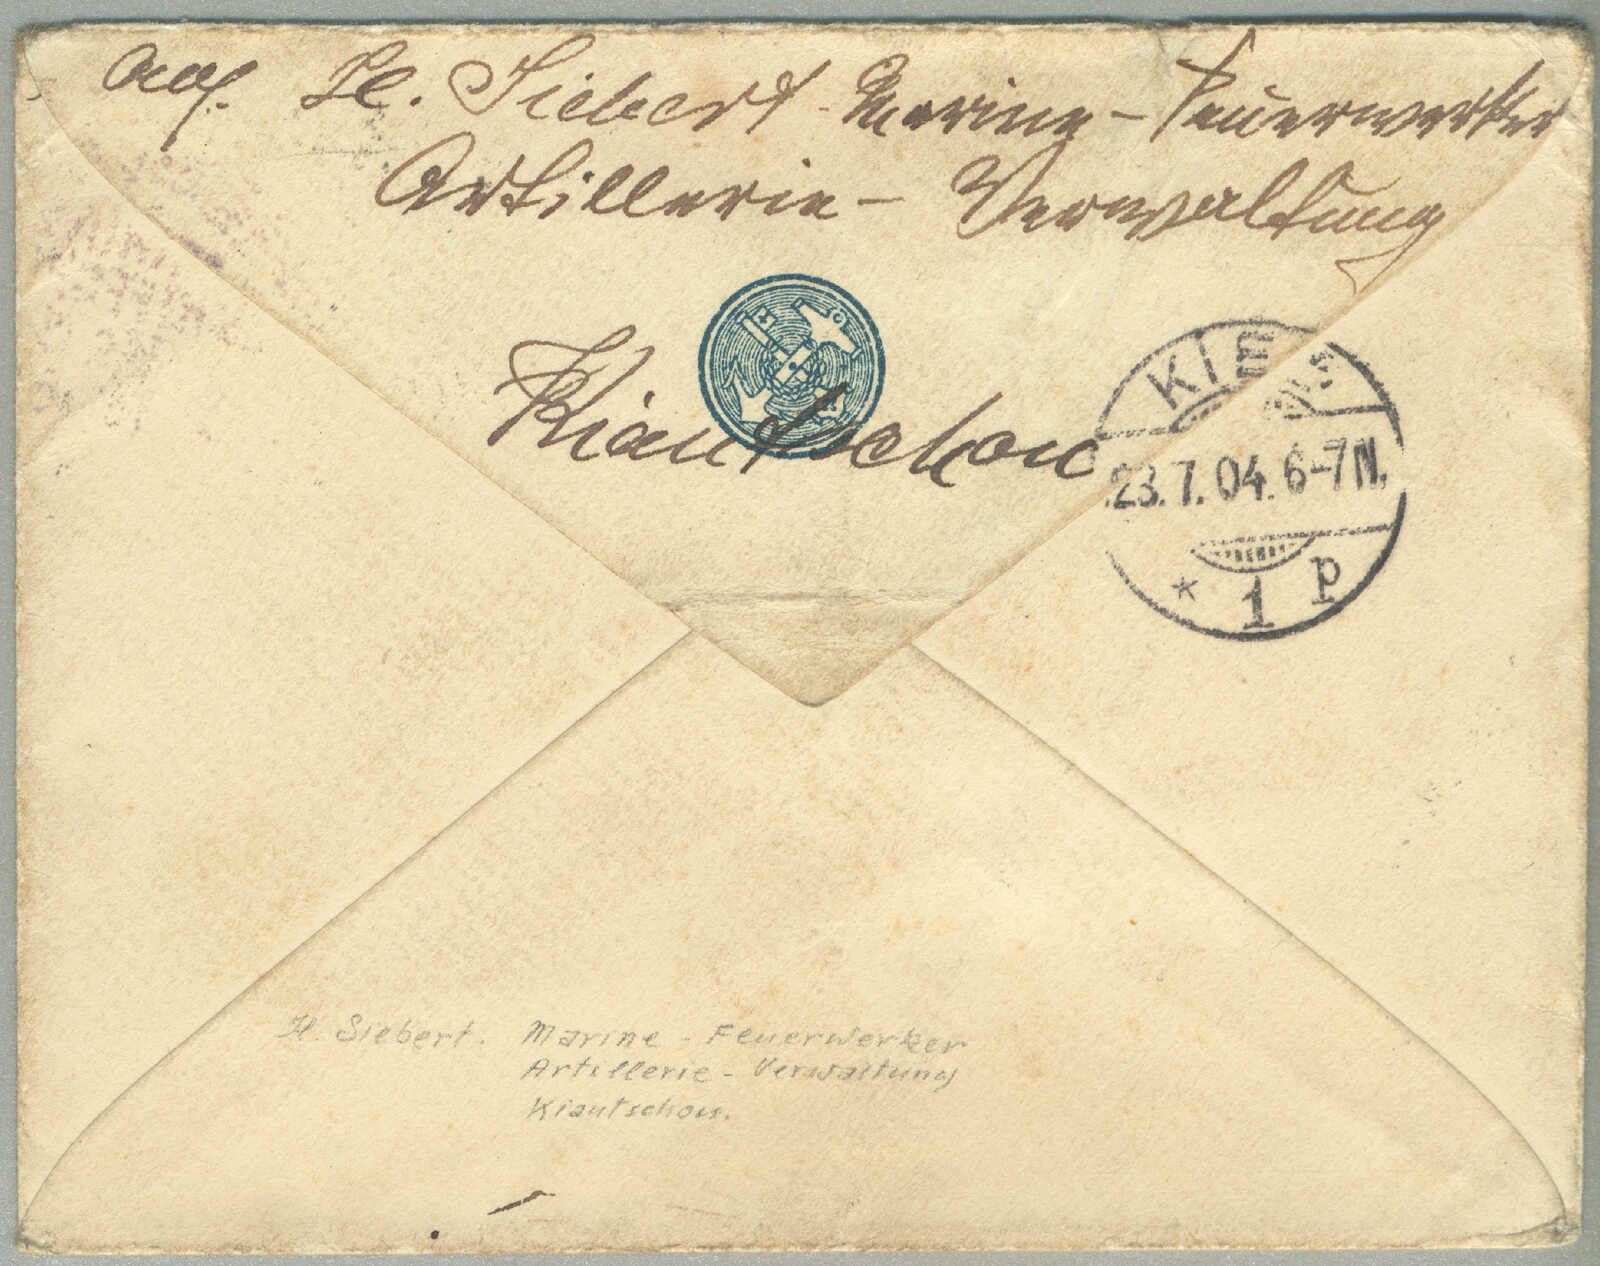 Abs. H. Siebert. Marine-Feuerwerker
Artillerie-Verwaltung
Kiautschou
KIEL
23.7.04. 6-7N.
* 1 p
H. Siebert. Marine - Feuerwerker
Artillerie - Verwaltung
Kiautschou.